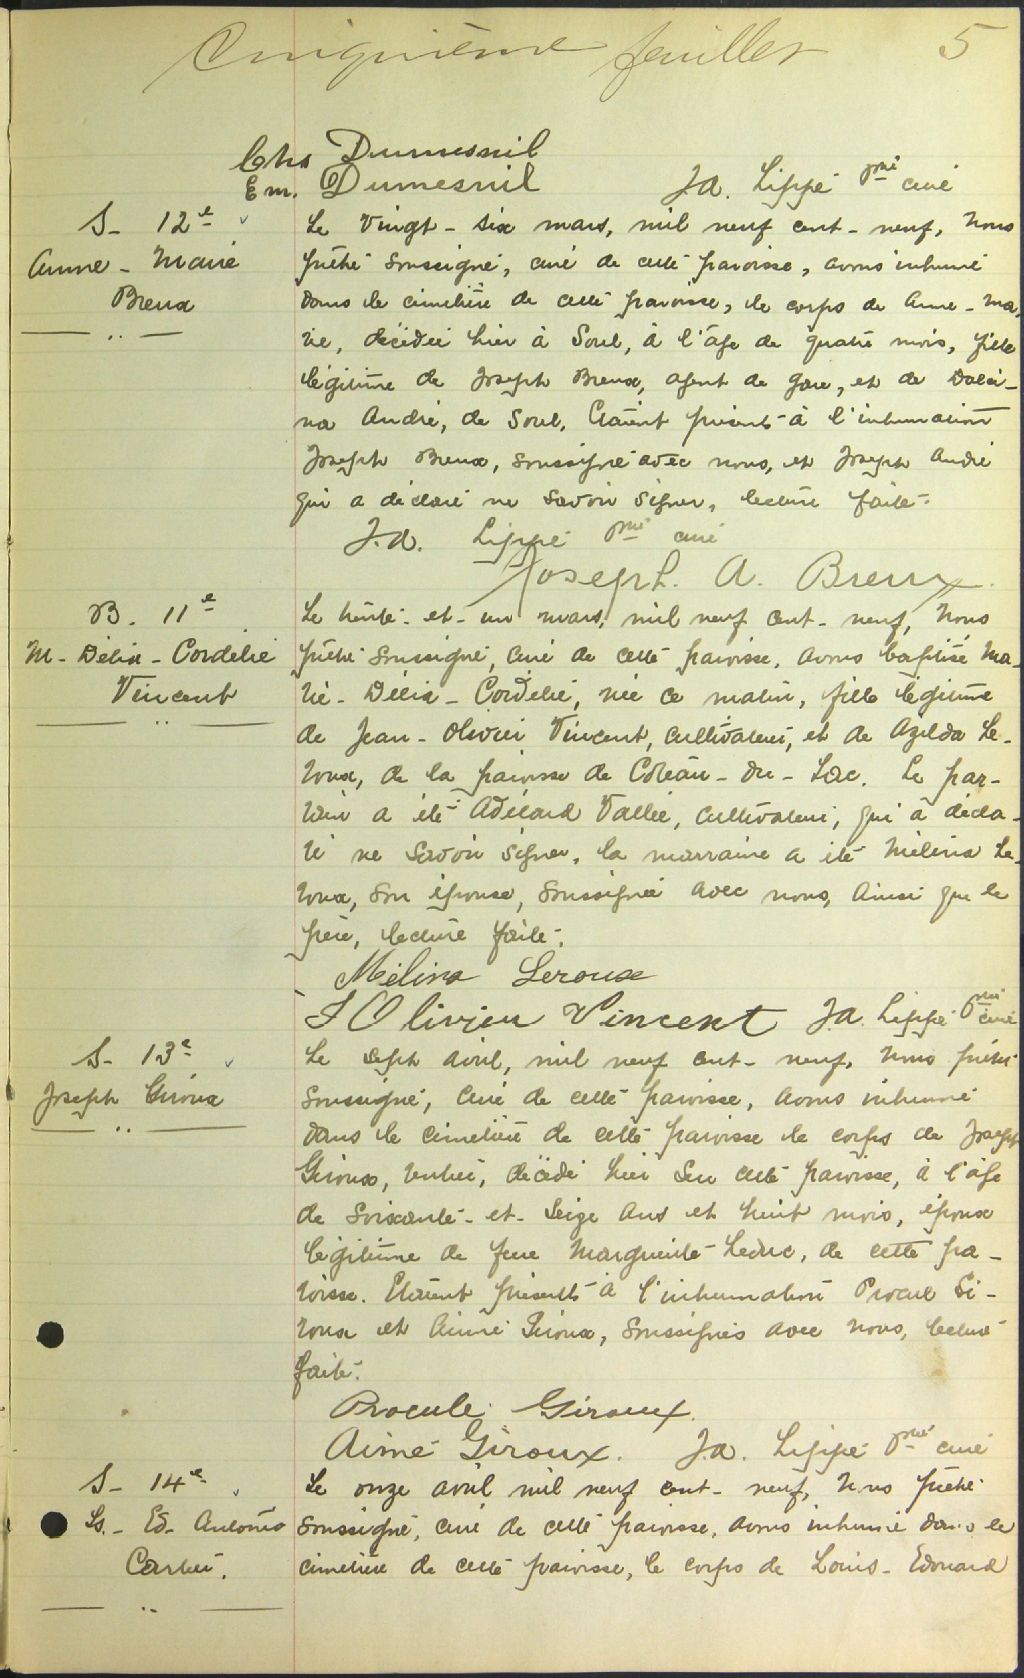 Cinquième feuillet 5
Chs Dumesnil
Em. Dumesnil J.A. Lippé ptre curé
S- 12e
Anne-Marie
Breux
Le vingt-six mars, mil neuf cent-neuf, Nous
prêtre soussigné, curé de cette paroisse, avons inhumé
dans le cimetière de cette paroisse, le corps de Anne-Ma-
rie, décédée hier à Sorel, à l'âge de quatre mois, fille
légitime de Joseph Breux, agent de gare, et de
André, de Sorel. Etaient présents à l'inhumation
Joseph Breux, soussigné avec nous, et Joseph André
qui a déclaré ne savoir signer, lecture faite.
J.A. Lippé ptre curé
Joseph. A. Breux.
B. 11e
M-Délia-Cordélie
Vincent
Le trente-et-un mars, mil neuf cent-neuf, Nous
prêtre soussigné, curé de cette paroisse, avons baptisé Ma-
rie-Délia-Cordélie, née ce matin, fille légitime
de Jean-Olivier Vincent, cultivateur, et de Azilda Le-
roux, de la paroisse de Côteau-du-Lac. Le par-
rain a été Adélard Vallée, cultivateur, qui a décla-
ré ne savoir signer, la marraine a été Mélina Le-
roux, son épouse, soussignée avec nous, ainsi que le
père, lecture faite.
Mélina Leroux
J Olivieu Vincent J.A. Lippé ptre curé
S- 13e
Joseph Giroux
Le sept avril, mil neuf cent-neuf, Nous prêtre
soussigné, curé de cette paroisse, avons inhumé
dans le cimetière de cette paroisse le corps de Joseph
Giroux, rentier, décédé hier en cette paroisse, à l'âge
de soixante-et-seize ans et huit mois, époux
légitime de feue Marguerite Leduc, de cette pa-
roisse. Etaient présents à l'inhumation Procul Gi-
roux et Aimé Giroux, soussignés avec nous, lecture
faite.
Procule Giroux
Aimé Giroux. J.A. Lippé ptre curé
S- 14e
Ls.-Ed-Antonio
Carbei.
Le onze avril mil neuf cent-neuf, Nous prêtre
soussigné, curé de cette paroisse, avons inhumé dans le
cimetière de cette paroisse, le corps de Louis-Edouard